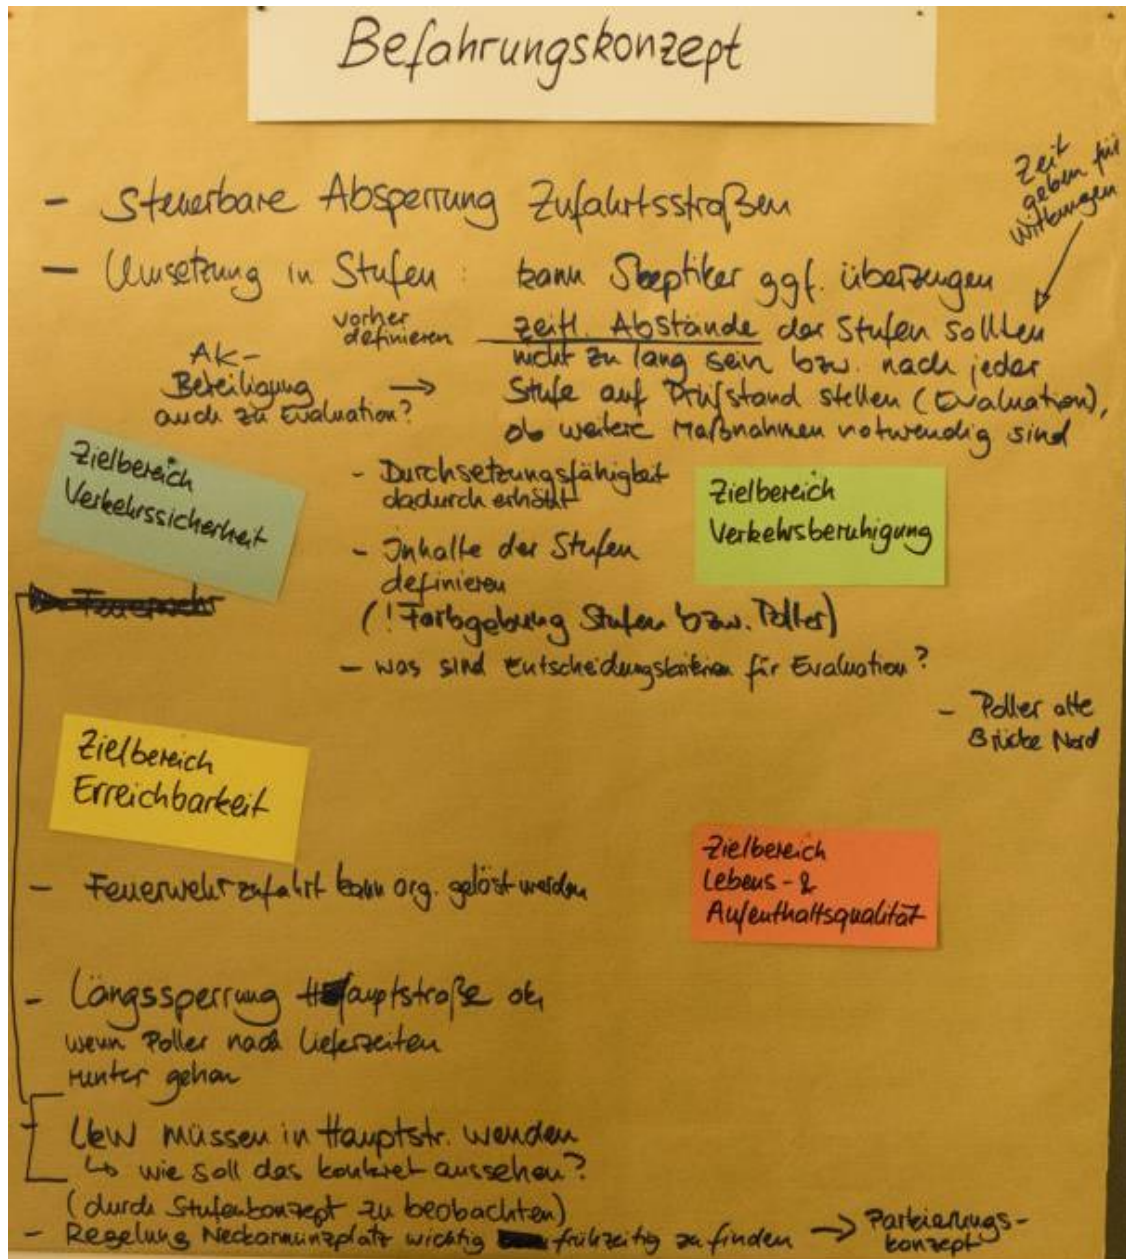 Befahrungskonzept
- Steuerbare Absperrung Zufahrtsstraßen
Zeit
geben für
Wirkungen
- Umsetzung in Stufen : kann Skeptiker ggf. überzeugen
vorher
definieren
zeitl. Abstände der Stufen sollten
nicht zu lang sein bzw. nach jeder
Stufe auf Prüfstand stellen (Evaluation),
ob weitere Maßnahmen notwendig sind
AK-
Beteiligung →
auch zu Evaluation?
Zielbereich
Verkehrssicherheit
- Durchsetzungsfähigkeit
dadurch erhöht
- Inhalte der Stufen
definieren
(! Farbgebung Stufen bzw. Poller)
- was sind Entscheidungskriterien für Evaluation?
Zielbereich
Verkehrsberuhigung
Feuerwehr
- Poller alte
Brücke Nord
Zielbereich
Erreichbarkeit
- Feuerwehrzufahrt kann org. gelöst werden
Zielbereich
Lebens- &
Aufenthaltsqualität
- Längssperrung Hauptstraße ok,
wenn Poller nach Lieferzeiten
runter gehen
- LKW müssen in Hauptstr. wenden
↳ wie soll das konkret aussehen?
(durch Stufenkonzept zu beobachten)
- Regelung Neckarmünzplatz wichtig frühzeitig zu finden → Parkierungs-
konzept